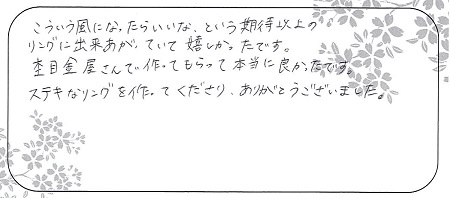 こういう風になったらいいな、という期待以上の
リングに出来あがっていて嬉しかったです。
杢目金屋さんで作ってもらって本当に良かったです。
ステキなリングを作ってくださり、ありがとうございました。